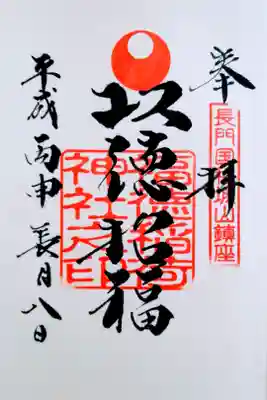 奉拝
長門国
山鎮座
以徳招福
福徳稲荷
神社之印
平成丙申長月八日